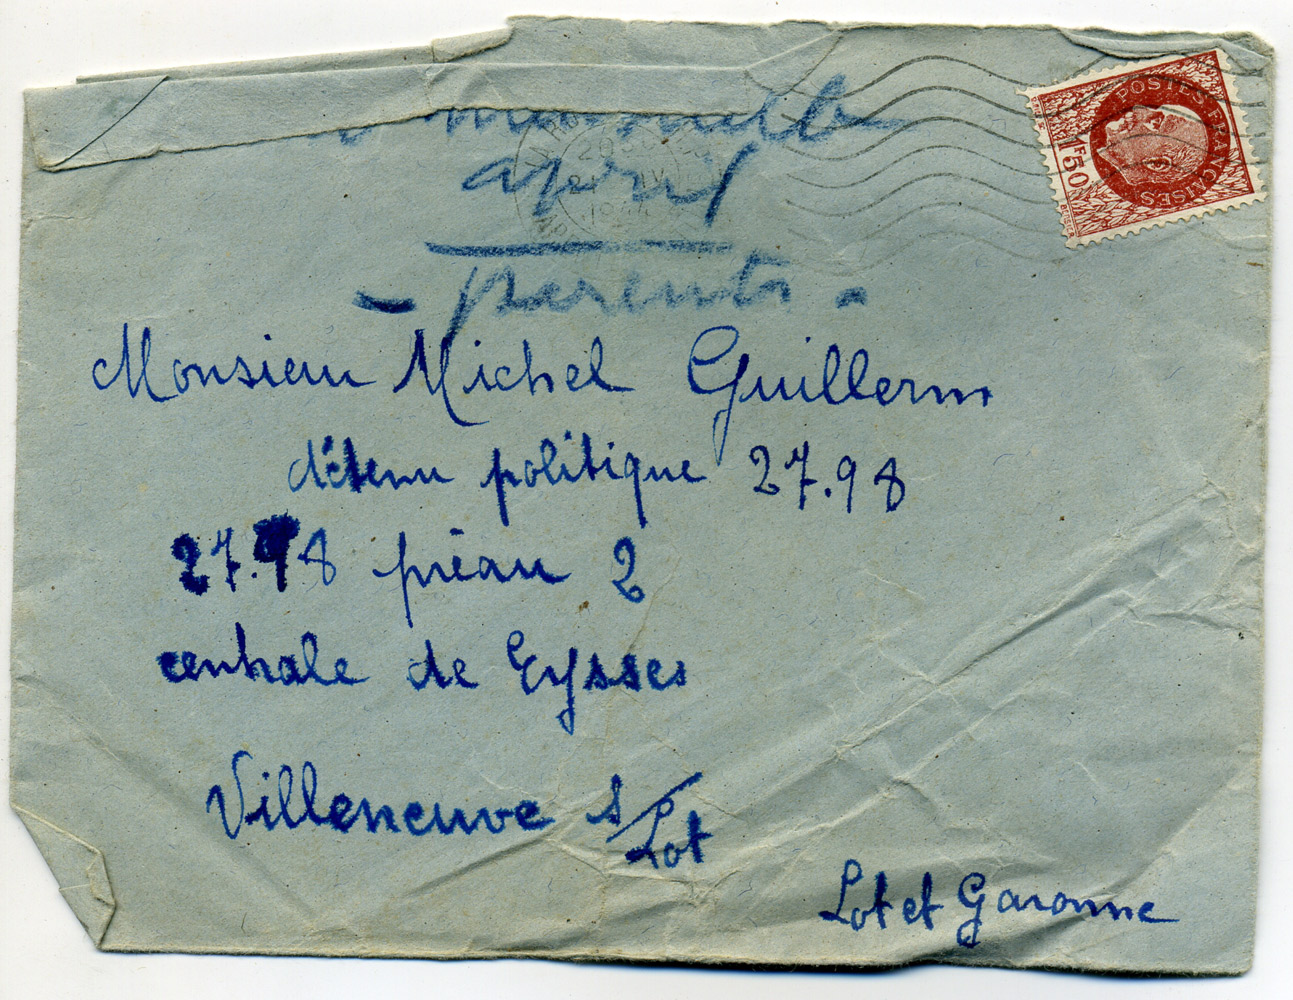 mensuelle
- parents -
Monsieur Michel Guillerm
détenu politique 27.98
27.98 préau 2
centrale de Eysses
Villeneuve s/Lot
Lot et Garonne
POSTES FRANÇAISES
1F50